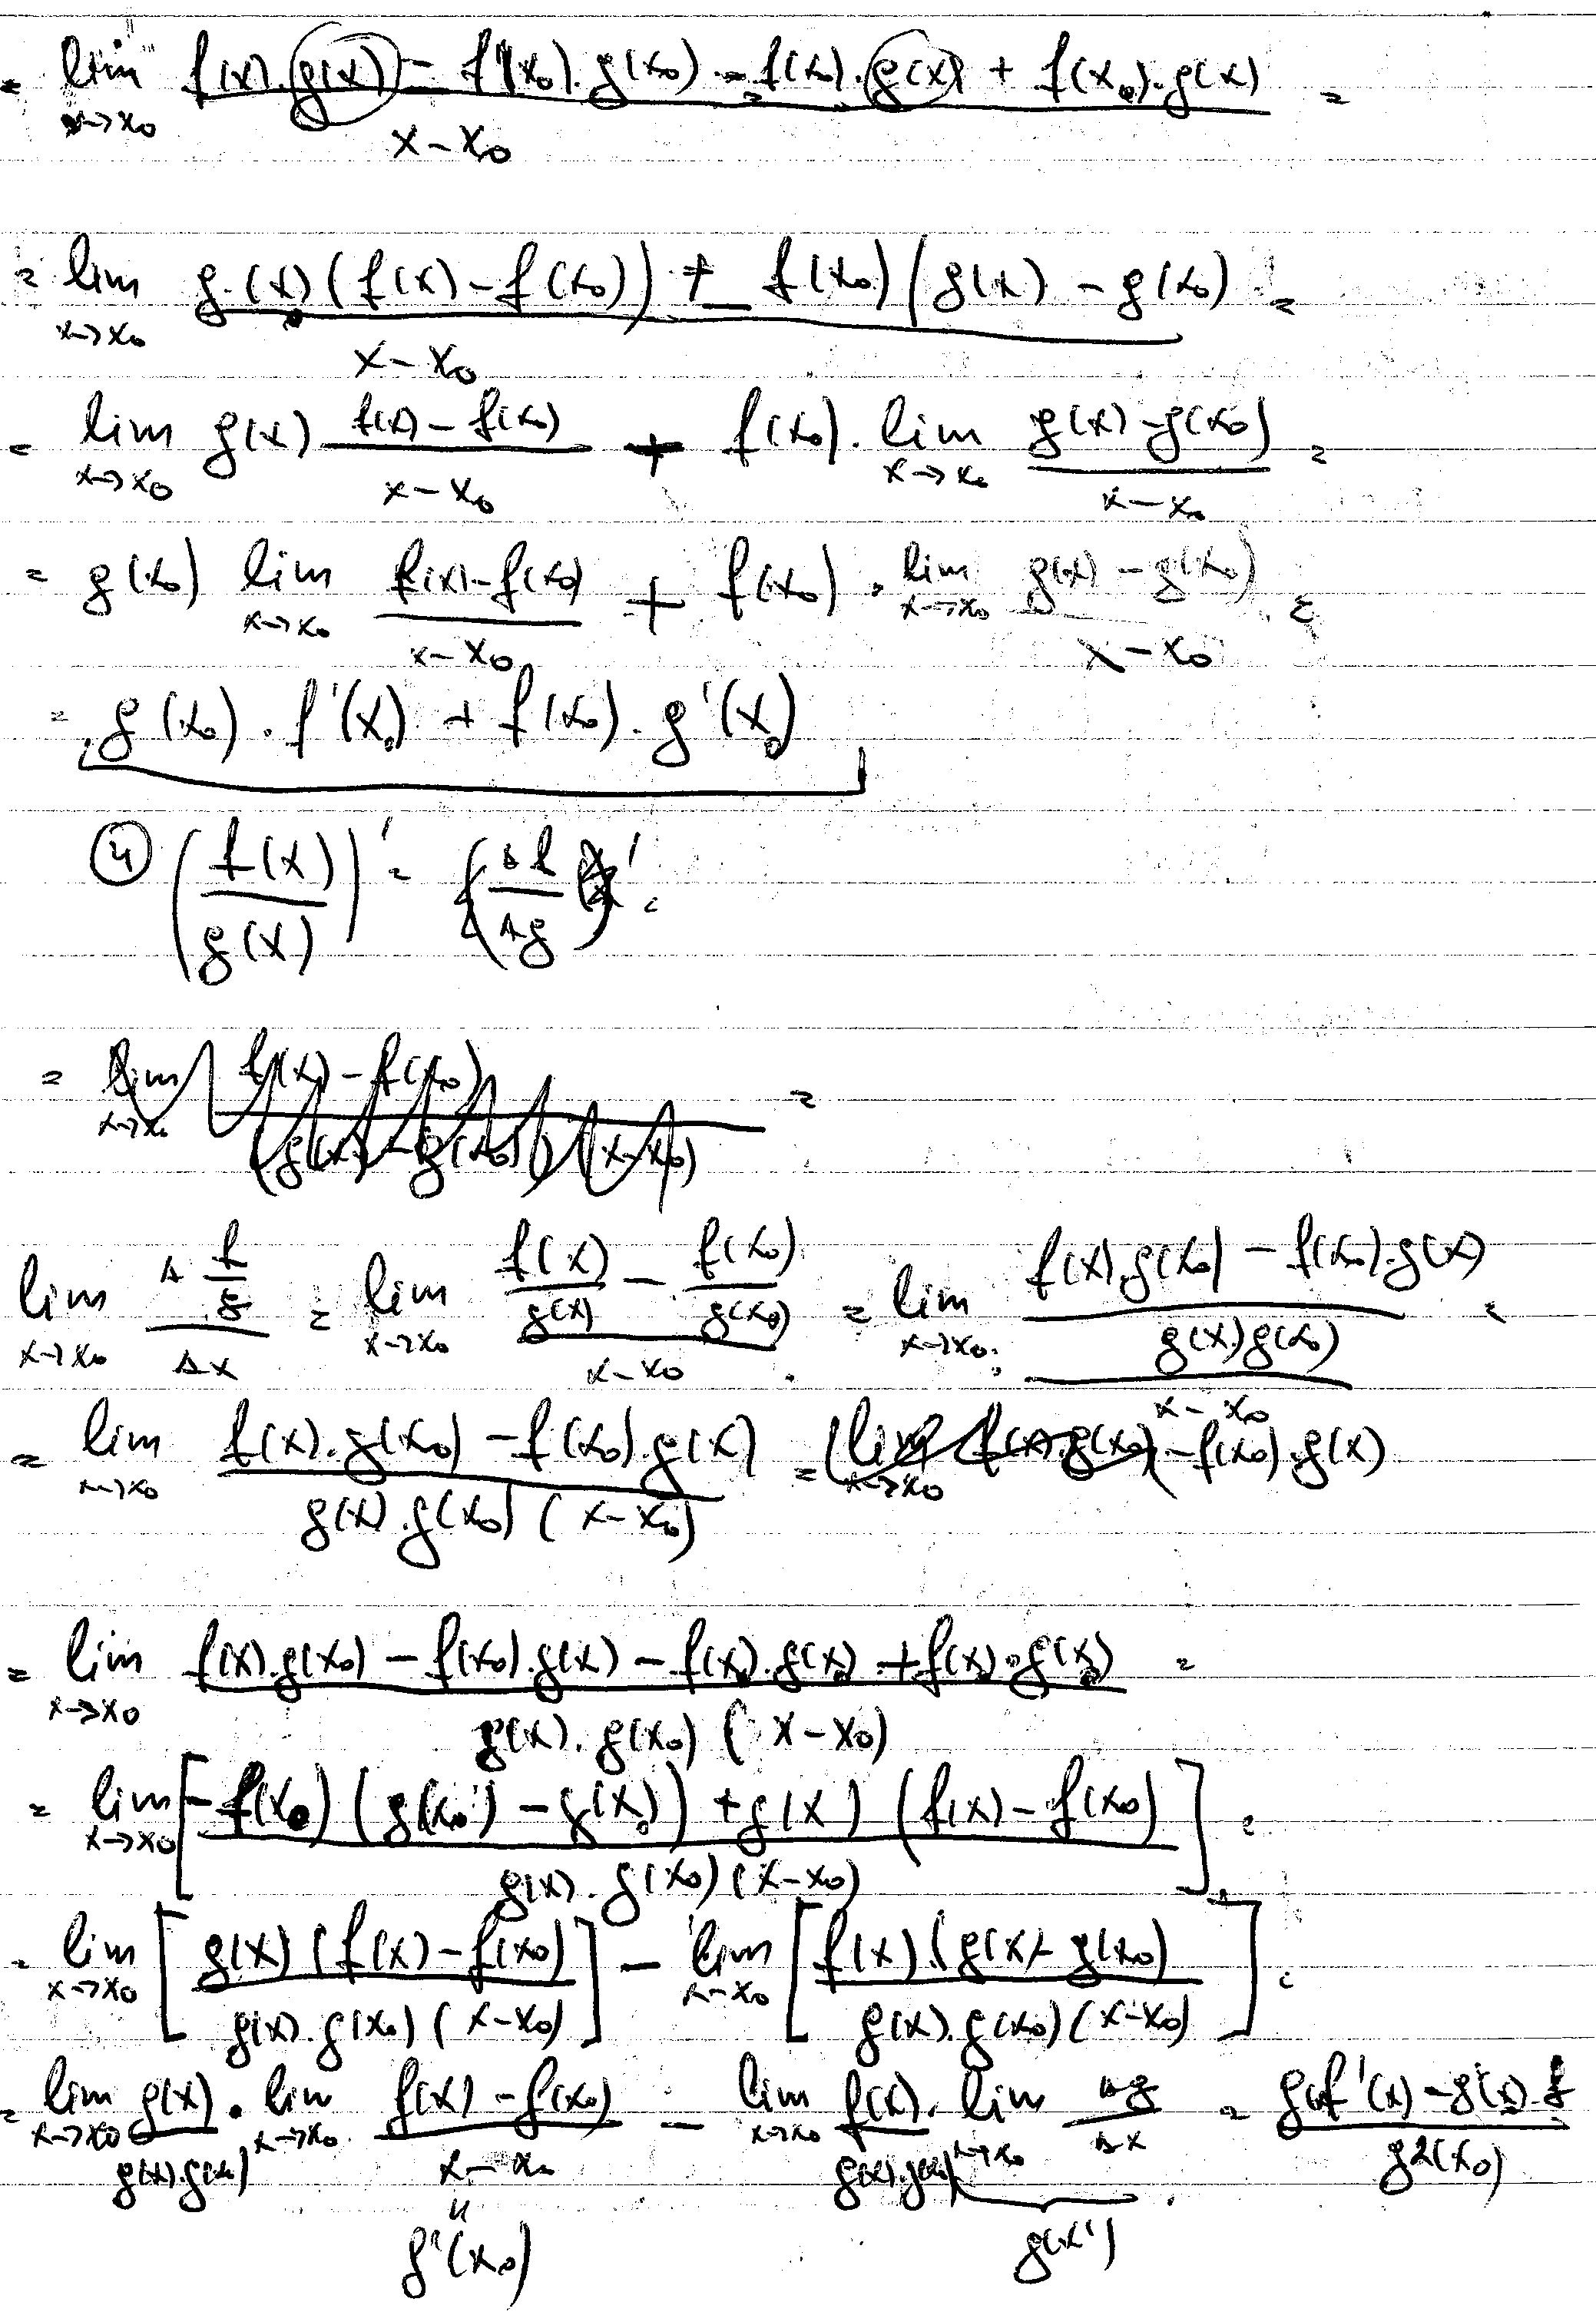 = lim x→x₀ (f(x).g(x) − f(x₀).g(x₀) − f(x₀).g(x) + f(x₀).g(x)) / (x−x₀) =
= lim x→x₀ (g(x)(f(x)−f(x₀)) + f(x₀)(g(x)−g(x₀)) / (x−x₀) =
= lim x→x₀ g(x) (f(x)−f(x₀)) / (x−x₀) + f(x₀). lim x→x₀ (g(x)−g(x₀)) / (x−x₀) =
= g(x₀) lim x→x₀ (f(x)−f(x₀)) / (x−x₀) + f(x₀) . lim x→x₀ (g(x)−g(x₀)) / (x−x₀) =
= g(x₀) . f'(x₀) + f(x₀) . g'(x₀)
④ (f(x) / g(x))' = (Δf / Δg)' =
= lim x→x₀ (f(x)−f(x₀)) / ((g(x)−g(x₀))(x−x₀)) =
lim x→x₀ (Δ f/g) / Δx = lim x→x₀ (f(x)/g(x) − f(x₀)/g(x₀)) / (x−x₀) = lim x→x₀ ((f(x).g(x₀) − f(x₀).g(x)) / (g(x)g(x₀))) / (x−x₀) =
= lim x→x₀ (f(x).g(x₀) − f(x₀).g(x)) / (g(x).g(x₀)(x−x₀)) = (lim x→x₀ f(x).g(x₀) − f(x₀).g(x)
= lim x→x₀ (f(x).g(x₀) − f(x₀).g(x) − f(x₀).g(x₀) + f(x₀).g(x₀)) / (g(x).g(x₀)(x−x₀)) =
= lim x→x₀ [−f(x₀)(g(x₀) − g(x₀)) + g(x)(f(x) − f(x₀) / g(x).g(x₀)(x−x₀)] =
= lim x→x₀ [g(x)(f(x)−f(x₀) / g(x).g(x₀)(x−x₀)] − lim x→x₀ [f(x).(g(x)−g(x₀) / g(x).g(x₀)(x−x₀)] =
= lim x→x₀ g(x) / g(x).g(x₀) . lim x→x₀ (f(x)−f(x₀)) / (x−x₀) − lim x→x₀ f(x) / g(x).g(x₀) . lim x→x₀ Δg / Δx =
f'(x₀) g(x')